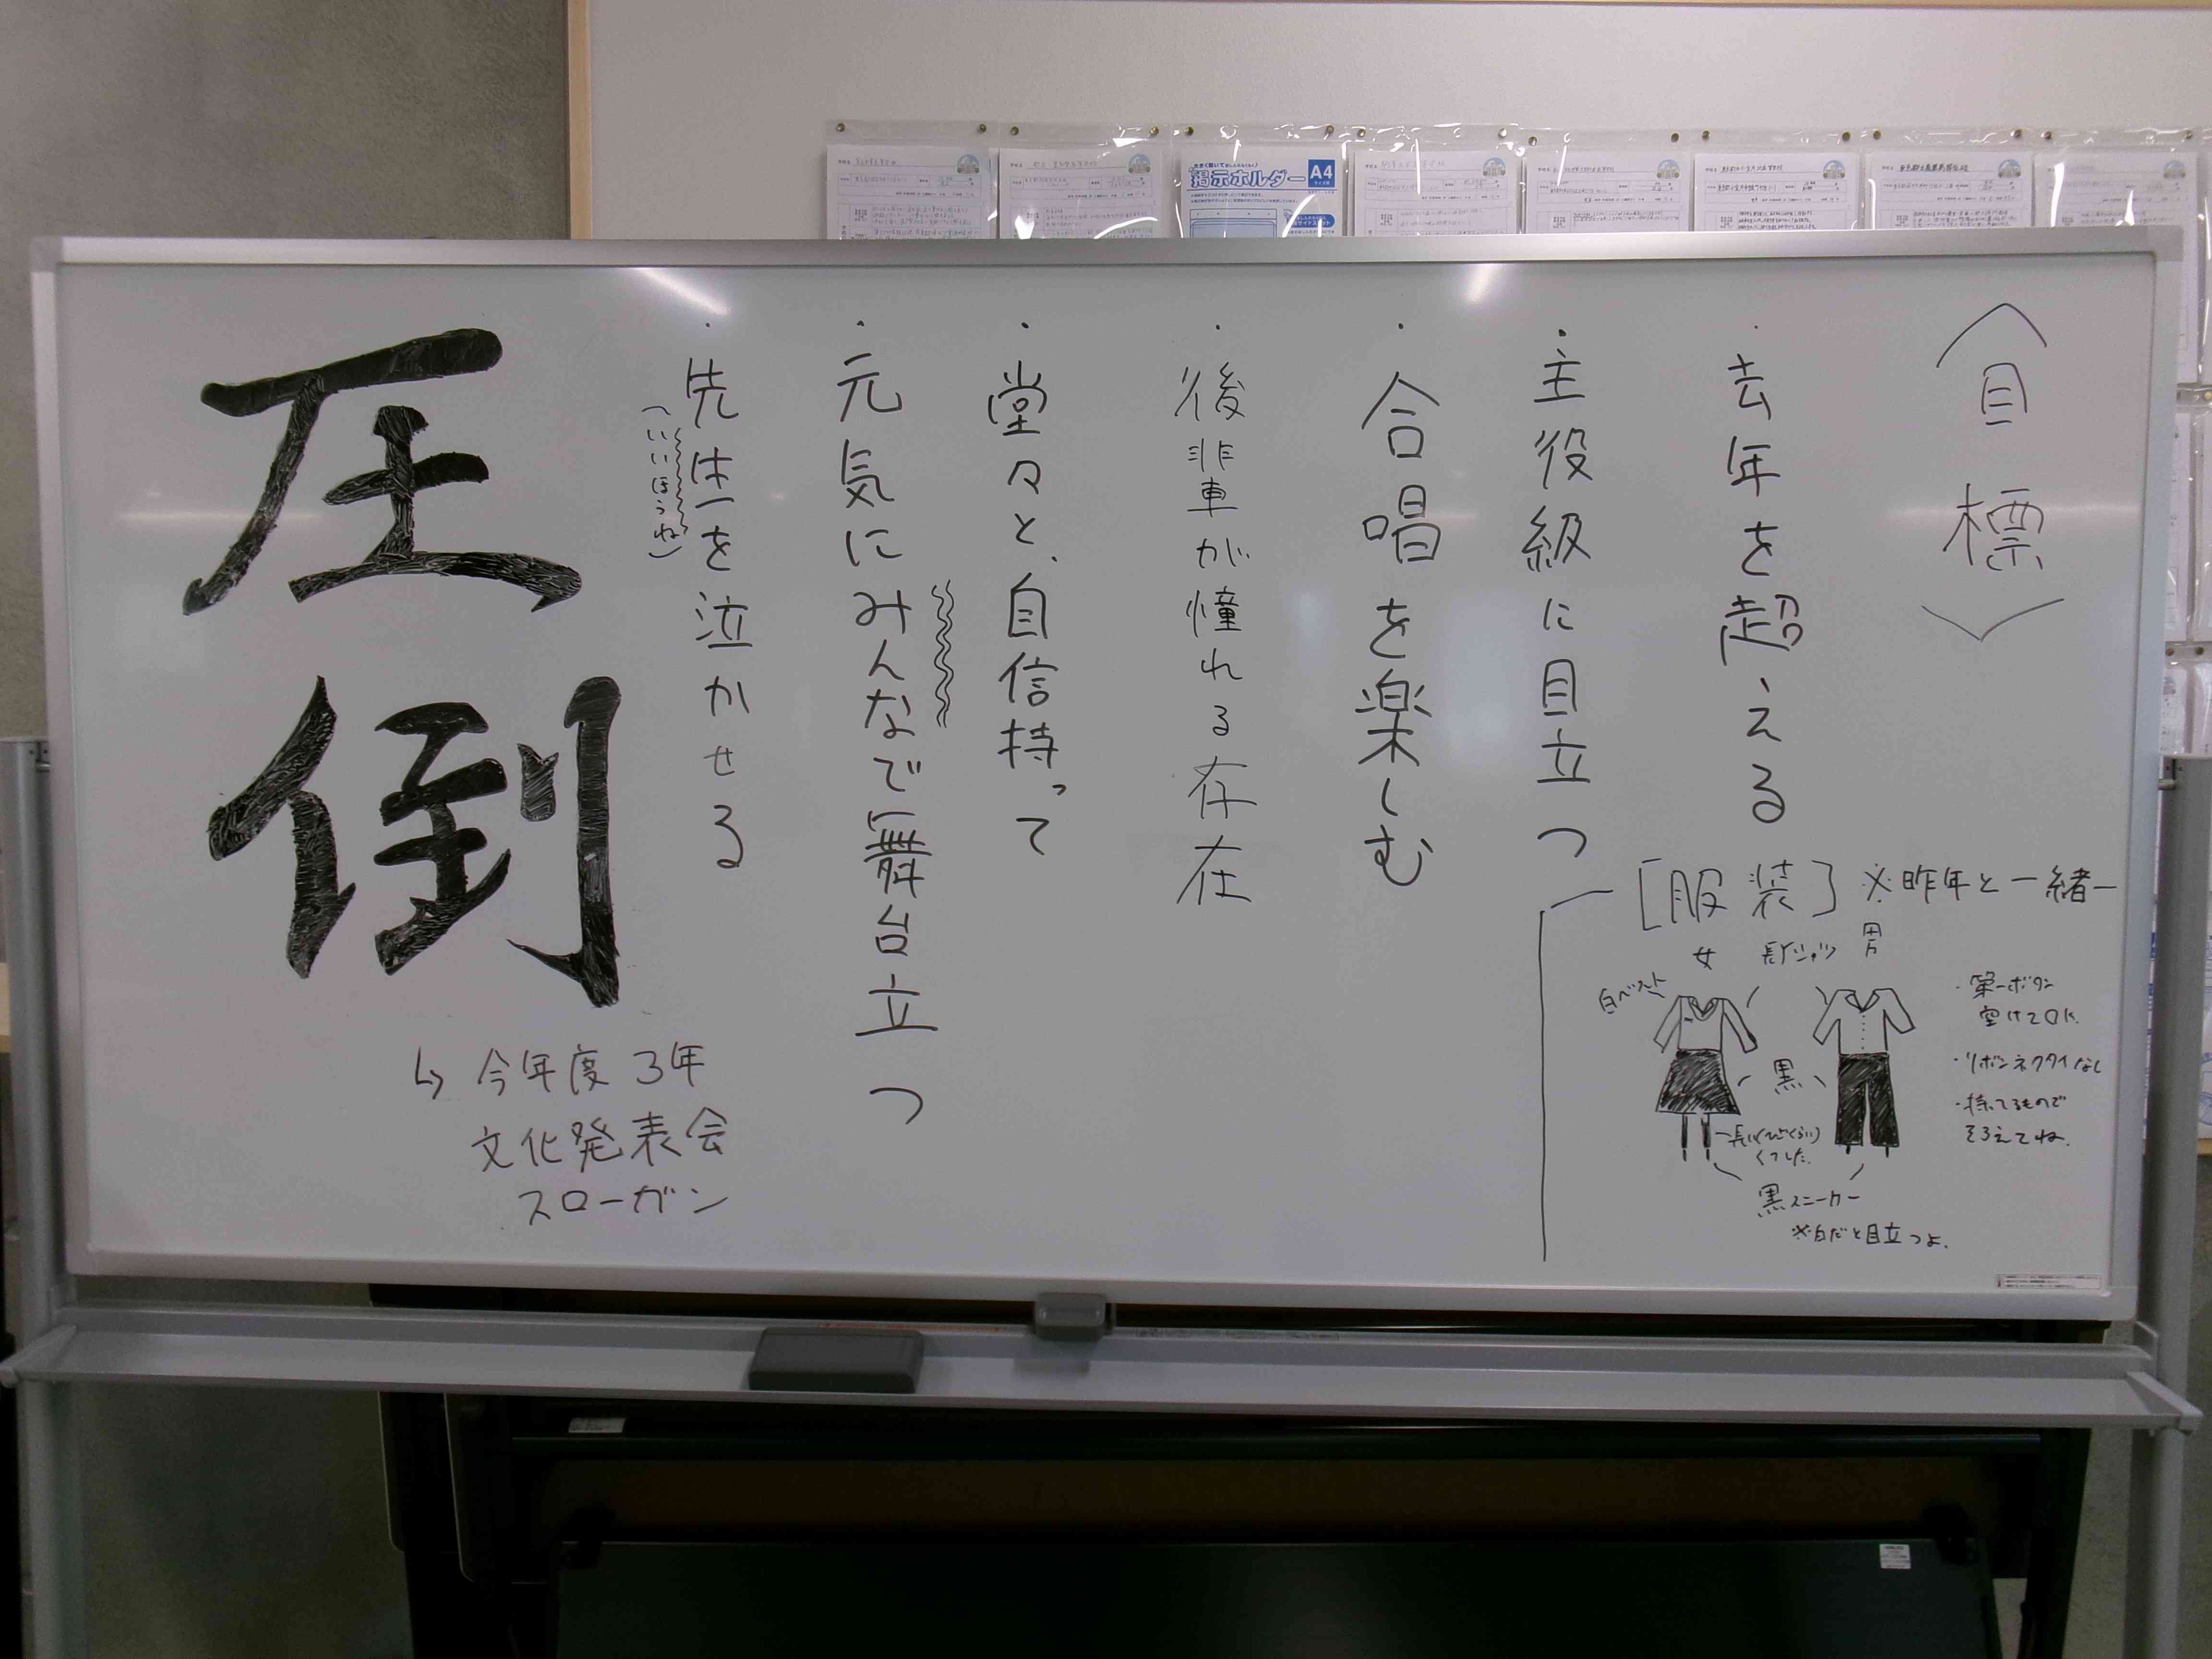 〈目標〉
・去年を超える
・主役級に目立つ
・合唱を楽しむ
・後輩が憧れる存在
・堂々と、自信持って
・元気にみんなで舞台立つ
・先生を泣かせる
（いいほうね）
圧倒
↳ 今年度3年
文化発表会
スローガン
［服装］※昨年と一緒
女
男
長Yシャツ
白ベスト
黒
長い(ひざくらい)
くつした
黒スニーカー
※白だと目立つよ.
・第一ボタン
空けてOK.
・リボンネクタイなし
・持ってるもので
そろえてね.
掲示ホルダー A4